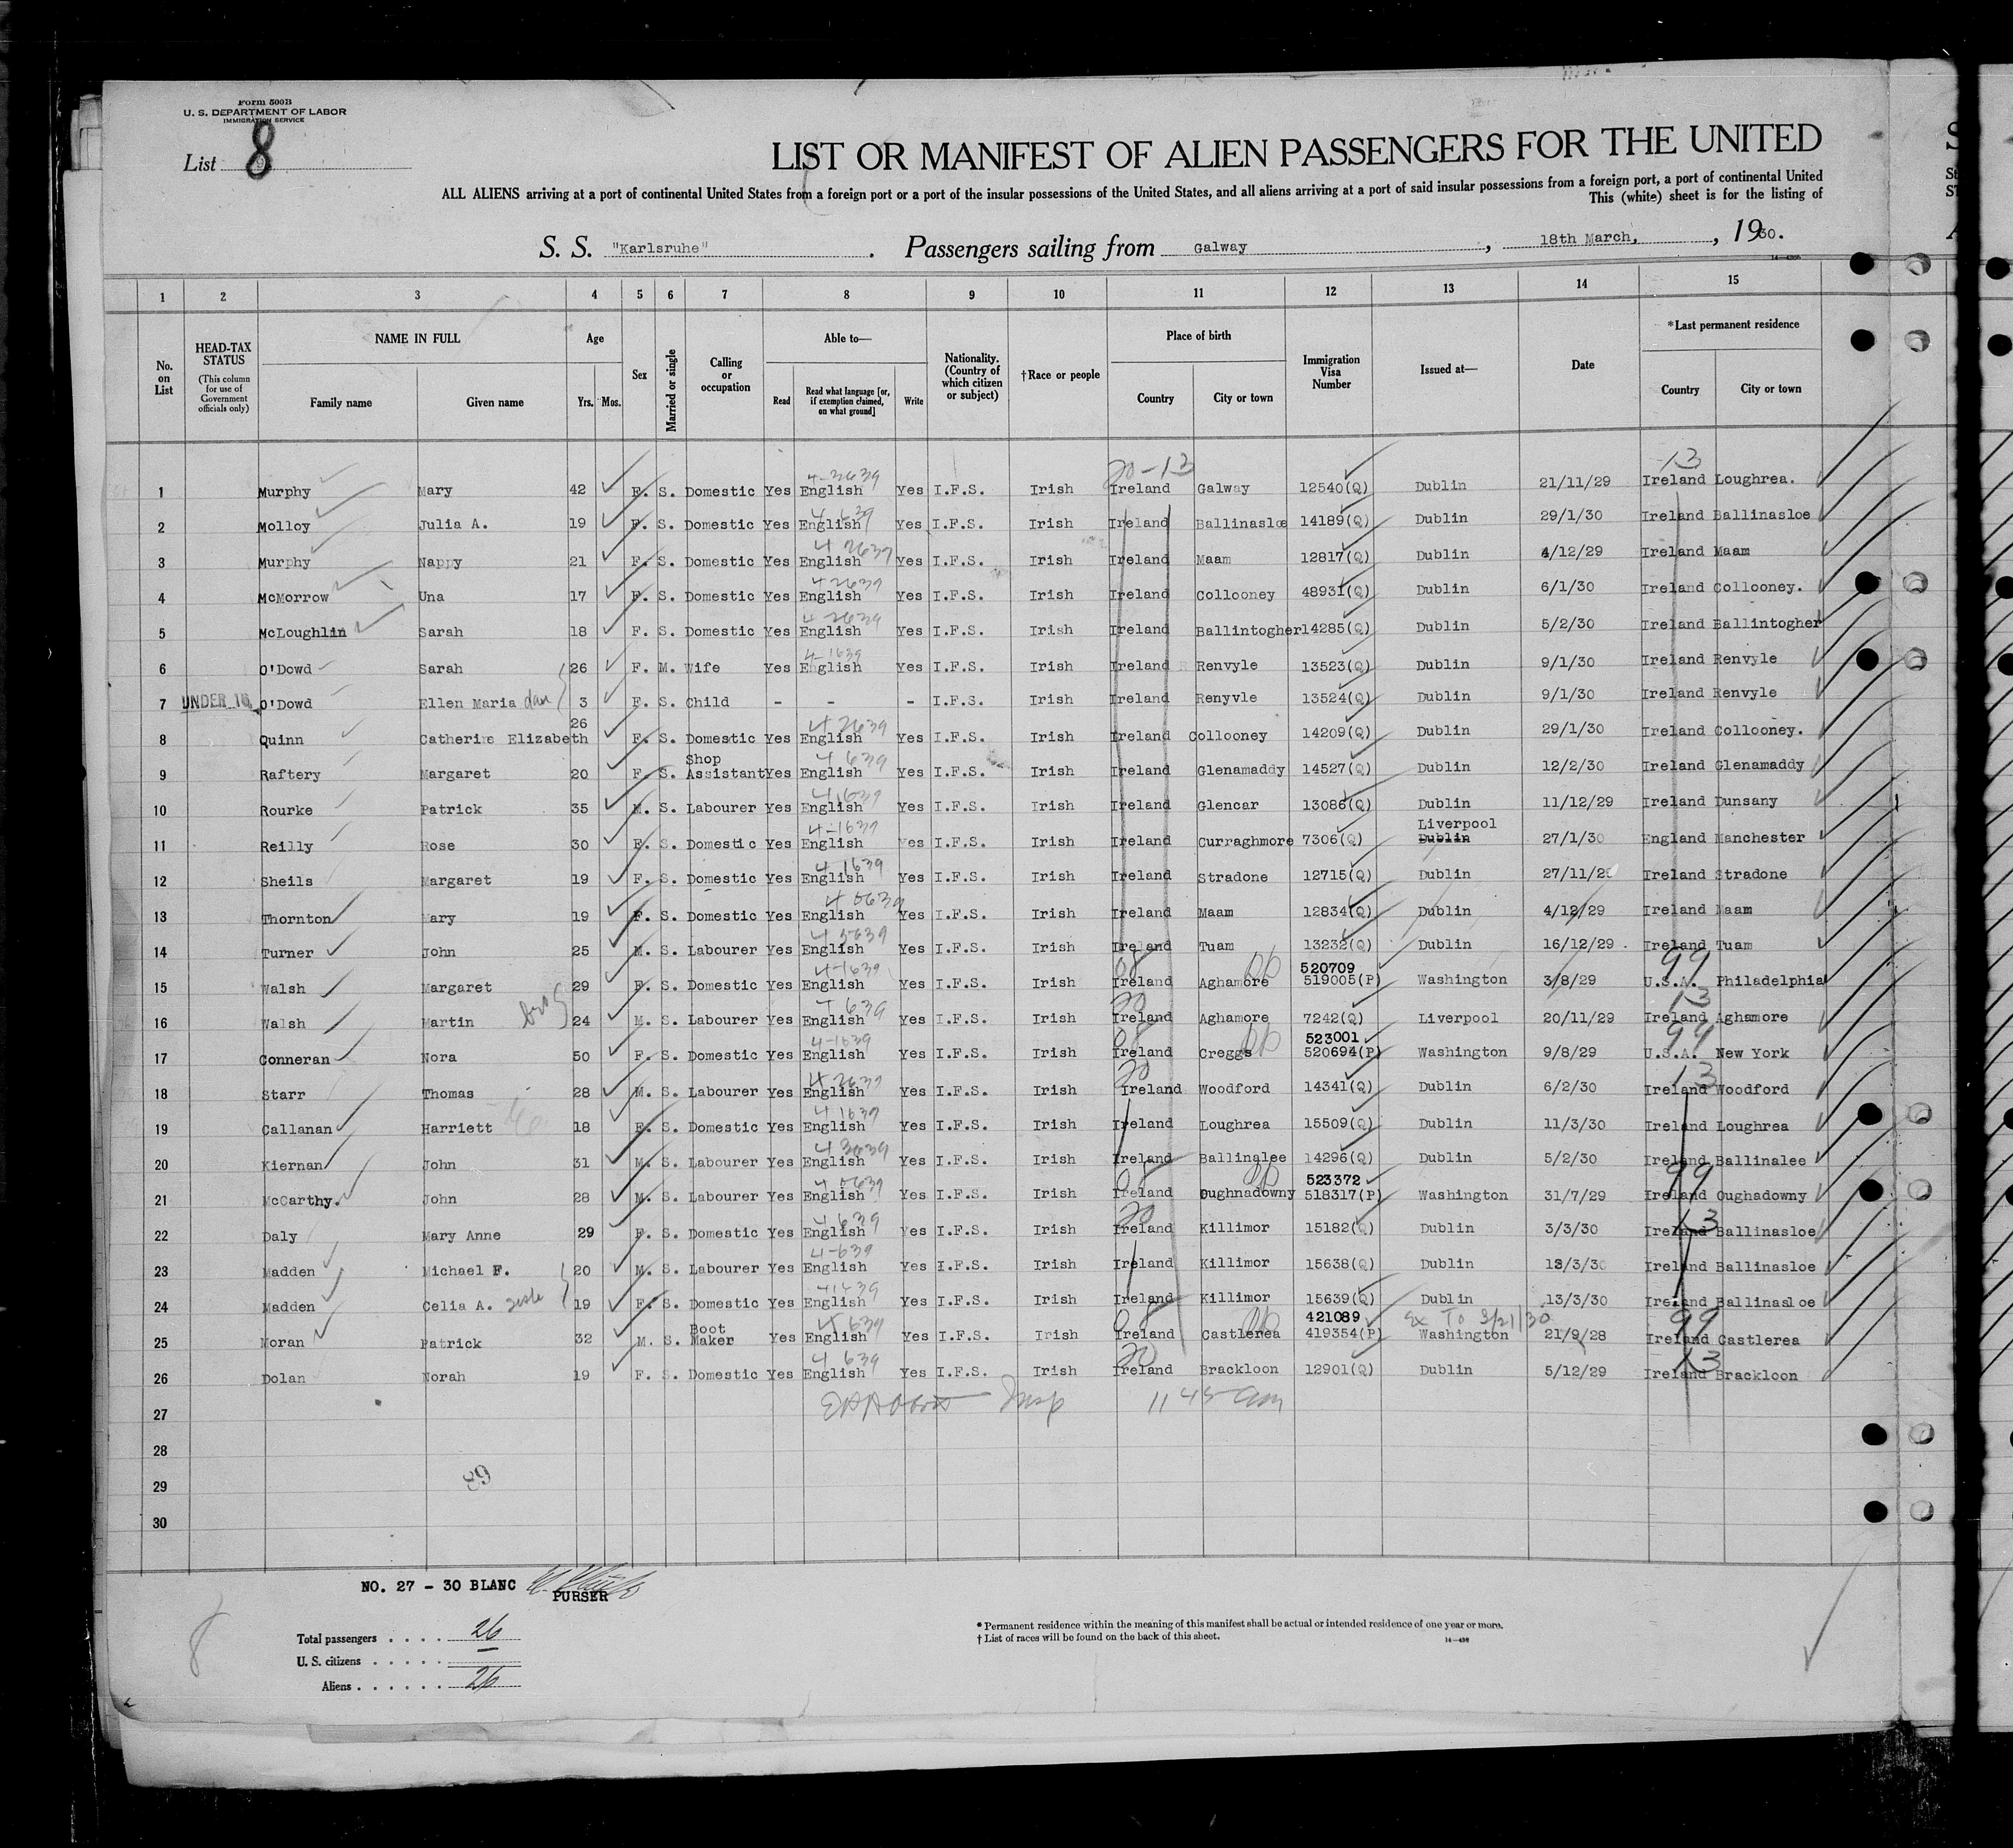 Form 500B
U. S. DEPARTMENT OF LABOR
IMMIGRATION SERVICE
List 8
LIST OR MANIFEST OF ALIEN PASSENGERS FOR THE UNITED
ALL ALIENS arriving at a port of continental United States from a foreign port or a port of the insular possessions of the United States, and all aliens arriving at a port of said insular possessions from a foreign port, a port of continental United
This (white) sheet is for the listing of
S. S. "Karlsruhe" . Passengers sailing from Galway , 18th March, , 1930.
1 2 3 4 5 6 7 8 9 10 11 12 13 14 15
No. on List HEAD-TAX STATUS (This column for use of Government officials only) NAME IN FULL Family name Given name Age Yrs. Mos. Sex Married or single Calling or occupation Able to— Read Read what language [or, if exemption claimed, on what ground] Write Nationality. (Country of which citizen or subject) †Race or people Place of birth Country City or town Immigration Visa Number Issued at— Date *Last permanent residence Country City or town
20-13 13
1 Murphy Mary 42 F. S. Domestic Yes English Yes I.F.S. Irish Ireland Galway 12540(Q) Dublin 21/11/29 Ireland Loughrea.
2 Molloy Julia A. 19 F. S. Domestic Yes English Yes I.F.S. Irish Ireland Ballinasloe 14189(Q) Dublin 29/1/30 Ireland Ballinasloe
3 Murphy Nappy 21 F. S. Domestic Yes English Yes I.F.S. Irish Ireland Maam 12817(Q) Dublin 4/12/29 Ireland Maam
4 McMorrow Una 17 F. S. Domestic Yes English Yes I.F.S. Irish Ireland Collooney 48931(Q) Dublin 6/1/30 Ireland Collooney.
5 McLoughlin Sarah 18 F. S. Domestic Yes English Yes I.F.S. Irish Ireland Ballintogher 14285(Q) Dublin 5/2/30 Ireland Ballintogher
6 O'Dowd Sarah 26 F. M. Wife Yes English Yes I.F.S. Irish Ireland Renvyle 13523(Q) Dublin 9/1/30 Ireland Renvyle
7 UNDER 16 O'Dowd Ellen Maria dau 3 F. S. Child - - - I.F.S. Irish Ireland Renyvle 13524(Q) Dublin 9/1/30 Ireland Renvyle
8 Quinn Catherine Elizabeth 26 F. S. Domestic Yes English Yes I.F.S. Irish Ireland Collooney 14209(Q) Dublin 29/1/30 Ireland Collooney.
9 Raftery Margaret 20 F. S. Shop Assistant Yes English Yes I.F.S. Irish Ireland Glenamaddy 14527(Q) Dublin 12/2/30 Ireland Glenamaddy
10 Rourke Patrick 35 M. S. Labourer Yes English Yes I.F.S. Irish Ireland Glencar 13086(Q) Dublin 11/12/29 Ireland Dunsany
11 Reilly Rose 30 F. S. Domestic Yes English Yes I.F.S. Irish Ireland Curraghmore 7306(Q) Liverpool Dublin 27/1/30 England Manchester
12 Sheils Margaret 19 F. S. Domestic Yes English Yes I.F.S. Irish Ireland Stradone 12715(Q) Dublin 27/11/29 Ireland Stradone
13 Thornton Mary 19 F. S. Domestic Yes English Yes I.F.S. Irish Ireland Maam 12834(Q) Dublin 4/12/29 Ireland Maam
14 Turner John 25 M. S. Labourer Yes English Yes I.F.S. Irish Ireland Tuam 13232(Q) Dublin 16/12/29 . Ireland Tuam
15 Walsh Margaret 29 F. S. Domestic Yes English Yes I.F.S. Irish Ireland Aghamore 520709 519005(P) Washington 3/8/29 U.S.A. Philadelphia
16 Walsh Martin bro 24 M. S. Labourer Yes English Yes I.F.S. Irish Ireland Aghamore 7242(Q) Liverpool 20/11/29 Ireland Aghamore
17 Conneran Nora 50 F. S. Domestic Yes English Yes I.F.S. Irish Ireland Creggs 523001 520694(P) Washington 9/8/29 U.S.A. New York
18 Starr Thomas 28 M. S. Labourer Yes English Yes I.F.S. Irish Ireland Woodford 14341(Q) Dublin 6/2/30 Ireland Woodford
19 Callanan Harriett 18 F. S. Domestic Yes English Yes I.F.S. Irish Ireland Loughrea 15509(Q) Dublin 11/3/30 Ireland Loughrea
20 Kiernan John 31 M. S. Labourer Yes English Yes I.F.S. Irish Ireland Ballinalee 14296(Q) Dublin 5/2/30 Ireland Ballinalee
21 McCarthy. John 28 M. S. Labourer Yes English Yes I.F.S. Irish Ireland Oughnadowny 523372 518317(P) Washington 31/7/29 Ireland Oughadowny
22 Daly Mary Anne 29 F. S. Domestic Yes English Yes I.F.S. Irish Ireland Killimor 15182(Q) Dublin 3/3/30 Ireland Ballinasloe
23 Madden Michael F. 20 M. S. Labourer Yes English Yes I.F.S. Irish Ireland Killimor 15638(Q) Dublin 13/3/30 Ireland Ballinasloe
24 Madden Celia A. 19 F. S. Domestic Yes English Yes I.F.S. Irish Ireland Killimor 15639(Q) Dublin 13/3/30 Ireland Ballinasloe
25 Moran Patrick 32 M. S. Boot Maker Yes English Yes I.F.S. Irish Ireland Castlerea 421089 419354(P) Ex To 3/21/30 Washington 21/9/28 Ireland Castlerea
26 Dolan Norah 19 F. S. Domestic Yes English Yes I.F.S. Irish Ireland Brackloon 12901(Q) Dublin 5/12/29 Ireland Brackloon
27 Insp 11 45 am
28
29 89
30
NO. 27 - 30 BLANC
PURSER
Total passengers . . . . 26
U. S. citizens . . . . .
Aliens . . . . . . 26
* Permanent residence within the meaning of this manifest shall be actual or intended residence of one year or more.
† List of races will be found on the back of this sheet.
14—438
8